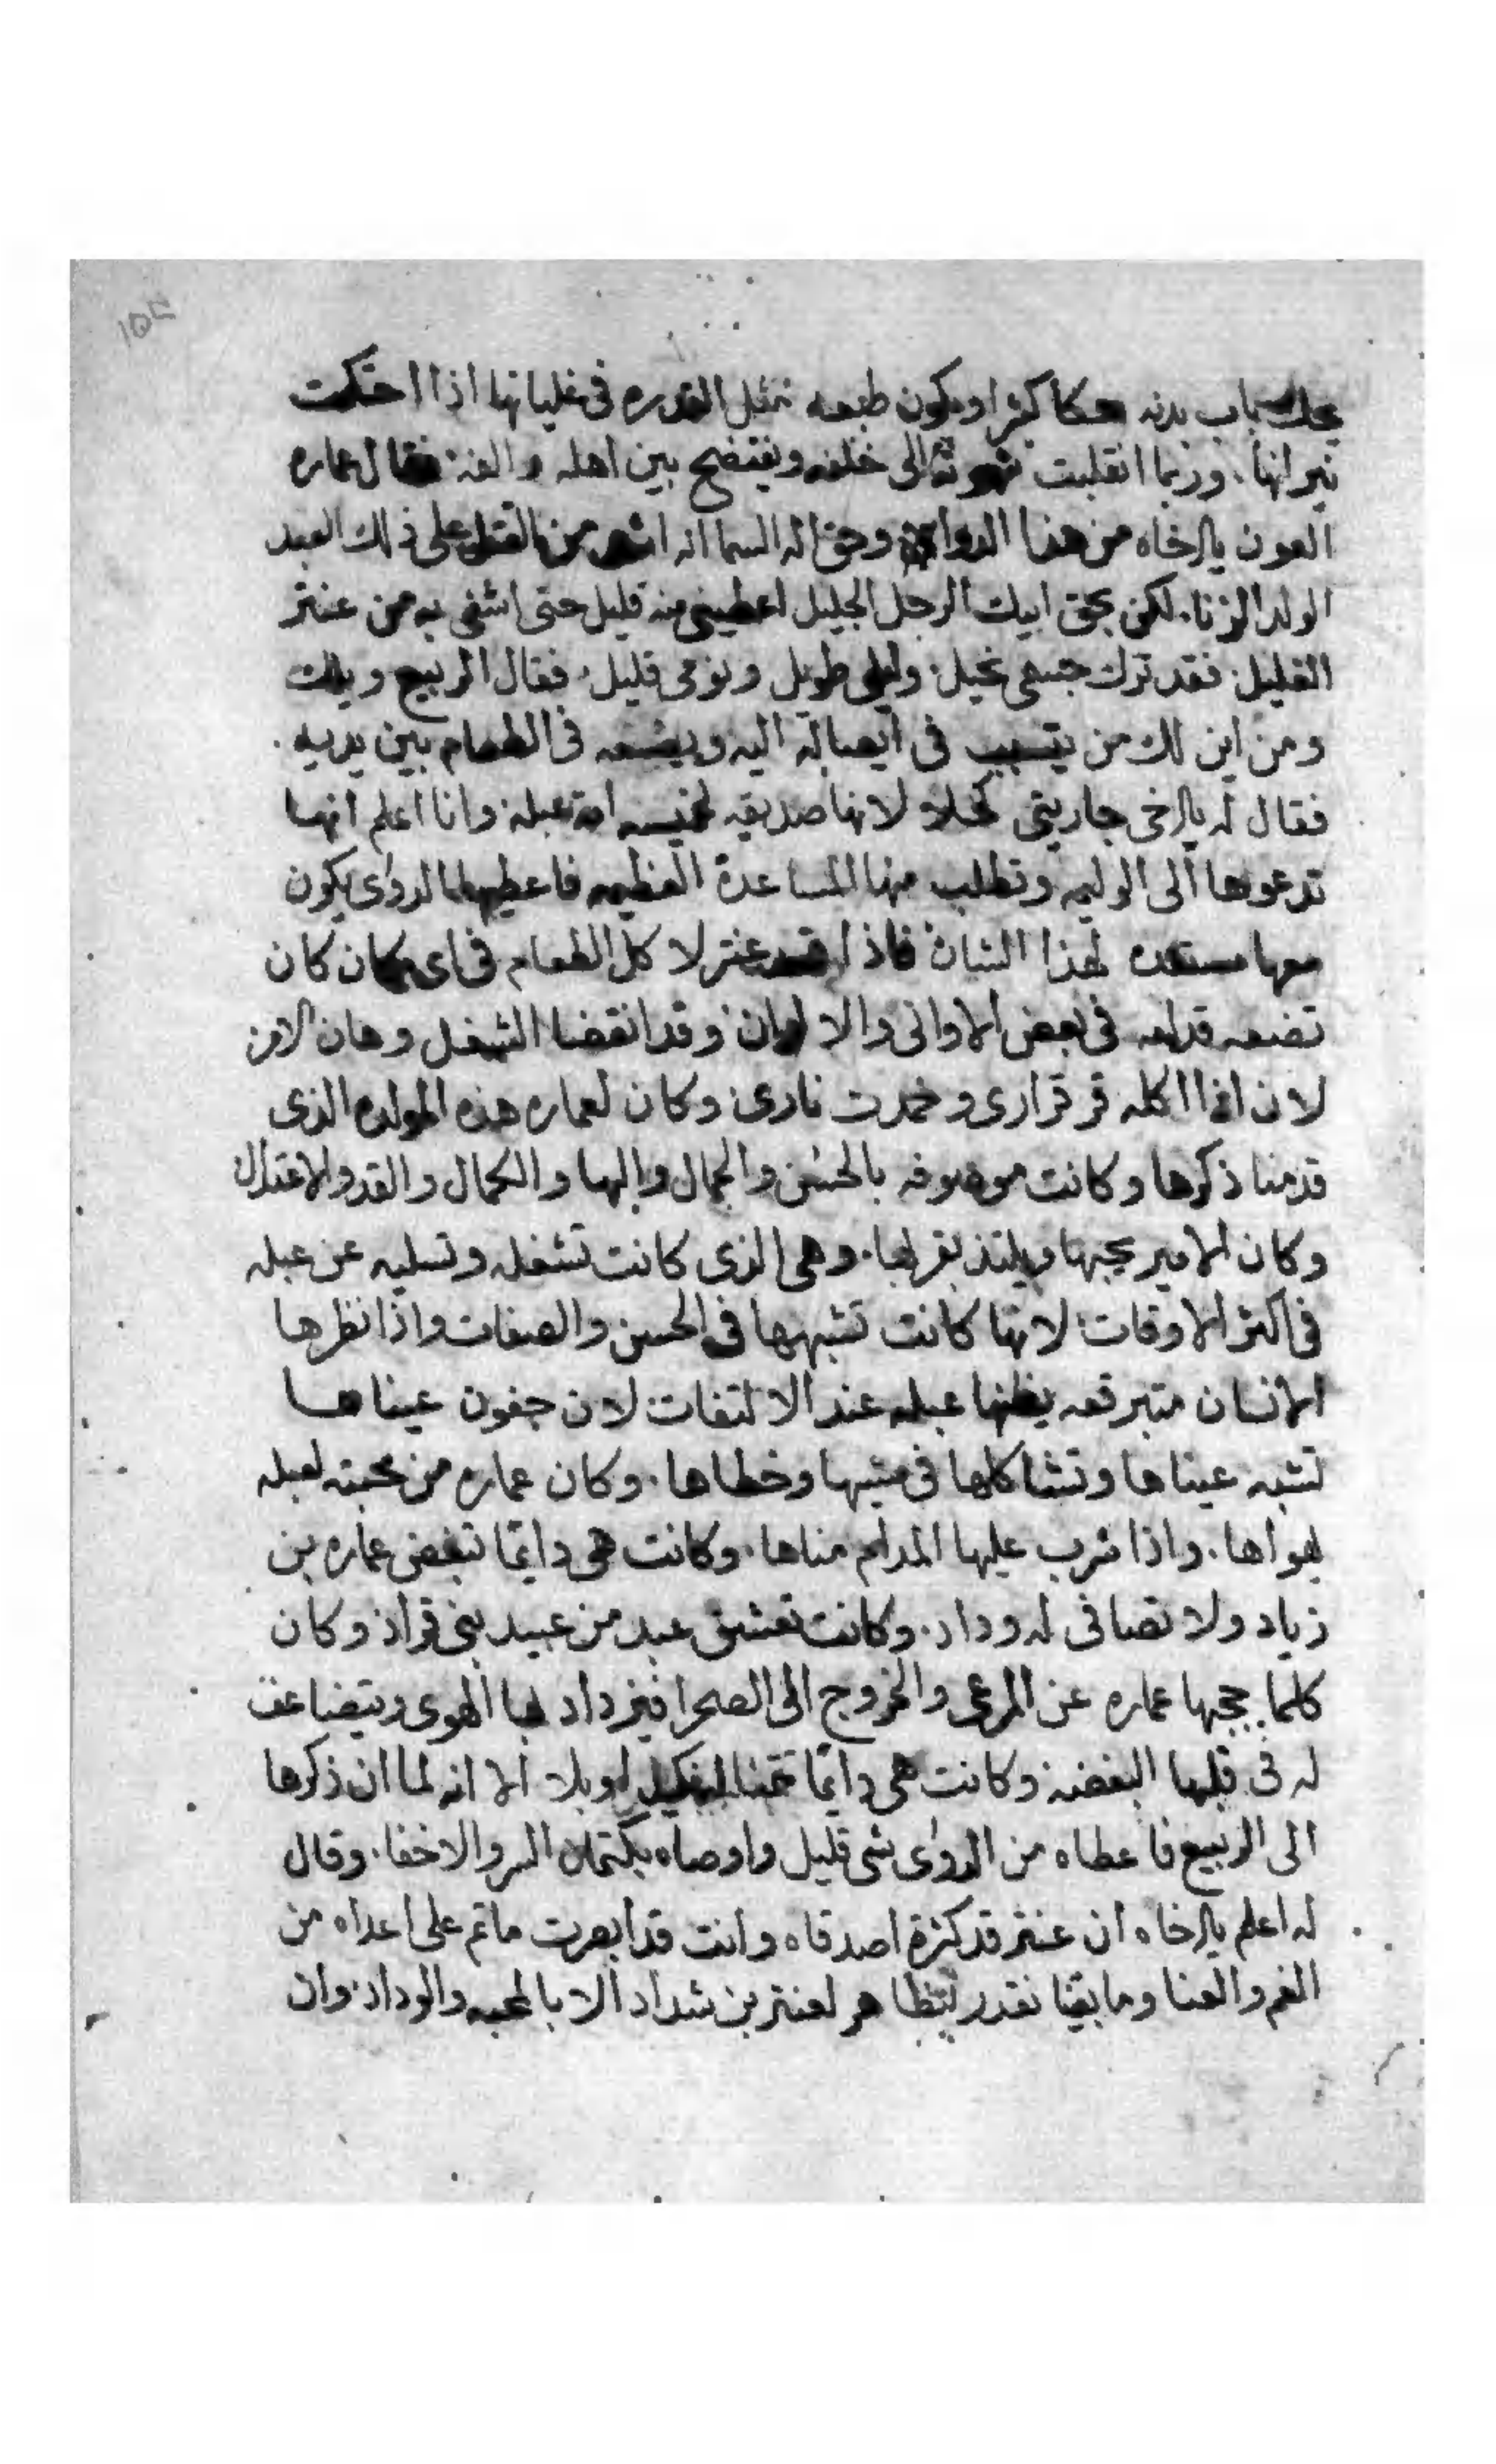 ١٥٣
بدنه حكا كثيرا ويكون طبعه مثل القدره فى غليانها اذا احتكت
نيرانها. وربما انقلبت شهوته الى خلفه ويفتضح بين اهله والفه. فقال عماره
العون يا اخاه من هذا الدوا وحق اله السما انه اشد من القتل على ذلك العبد
الولد الزنا. لكن بحق ابيك الرجل الجليل اعطينى منه قليل حتى اشفى به من عنتر
الغليل. فقد ترك جسمى نحيل. وليلى طويل ونومى قليل. فقال الربيع ويلك
ومن اين لك من يتسبب فى ايصاله اليه ويضعه فى الطعام بين يديه.
فقال له يا اخى جاريتى كحلا لانها صديقه لخميسه امة عبله وانا اعلم انها
تدعوها الى الوليمه وتطلب منها المساعدة العظيمه فاعطيها الدوى يكون
معها مستعده لهذا الشان فاذا قعد عنتر لاكل الطعام فى اى مكان كان
تضعه قدامه فى بعض الاوانى والا لوان وقد انقضا الشغل وهان الامر
لان اذا اكله قر قرارى وخمدت نارى. وكان لعماره هذه المولده الذى
قدمنا ذكرها وكانت موصوفه بالحسن والجمال والبها والكمال والقد والاعتدال
وكان الامير يحبها ويلتذ بقربها. وهى الذى كانت تشغله وتسليه عن عبله
فى اكثر الاوقات لانها كانت تشبهها فى الحسن والصفات واذا نظرها
الانسان متبرقعه يظنها عبله عند الالتفات لان جفون عيناها
تشبه عيناها وتشاكلها فى مشيها وخطاها. وكان عماره من محبته لعبله
يهواها. واذا شرب عليها المدام مناها. وكانت هى دايما تبغض عماره بن
زياد ولا تصافى له وداد. وكانت تعشق عبد من عبيد بنى قراد وكان
كلما حجبها عماره عن المرعى والخروج الى الصحرا فيزداد بها الهوى ويتضاعف
له فى قلبها البغضه وكانت هى دايما تتمنا له وبلا الا انه لما ان ذكرها
الى الربيع فاعطاه من الدوى شى قليل واوصاه بكتمان السر والاخفا. وقال
له اعلم يا اخاه ان عنتر قد كثرة اصدقاه وانت قد ابصرت ماتم على اعداه من
الغم والعنا وما بقينا نقدر نتظاهر لعنتر بن شداد الا بالمحبه والوداد. وان